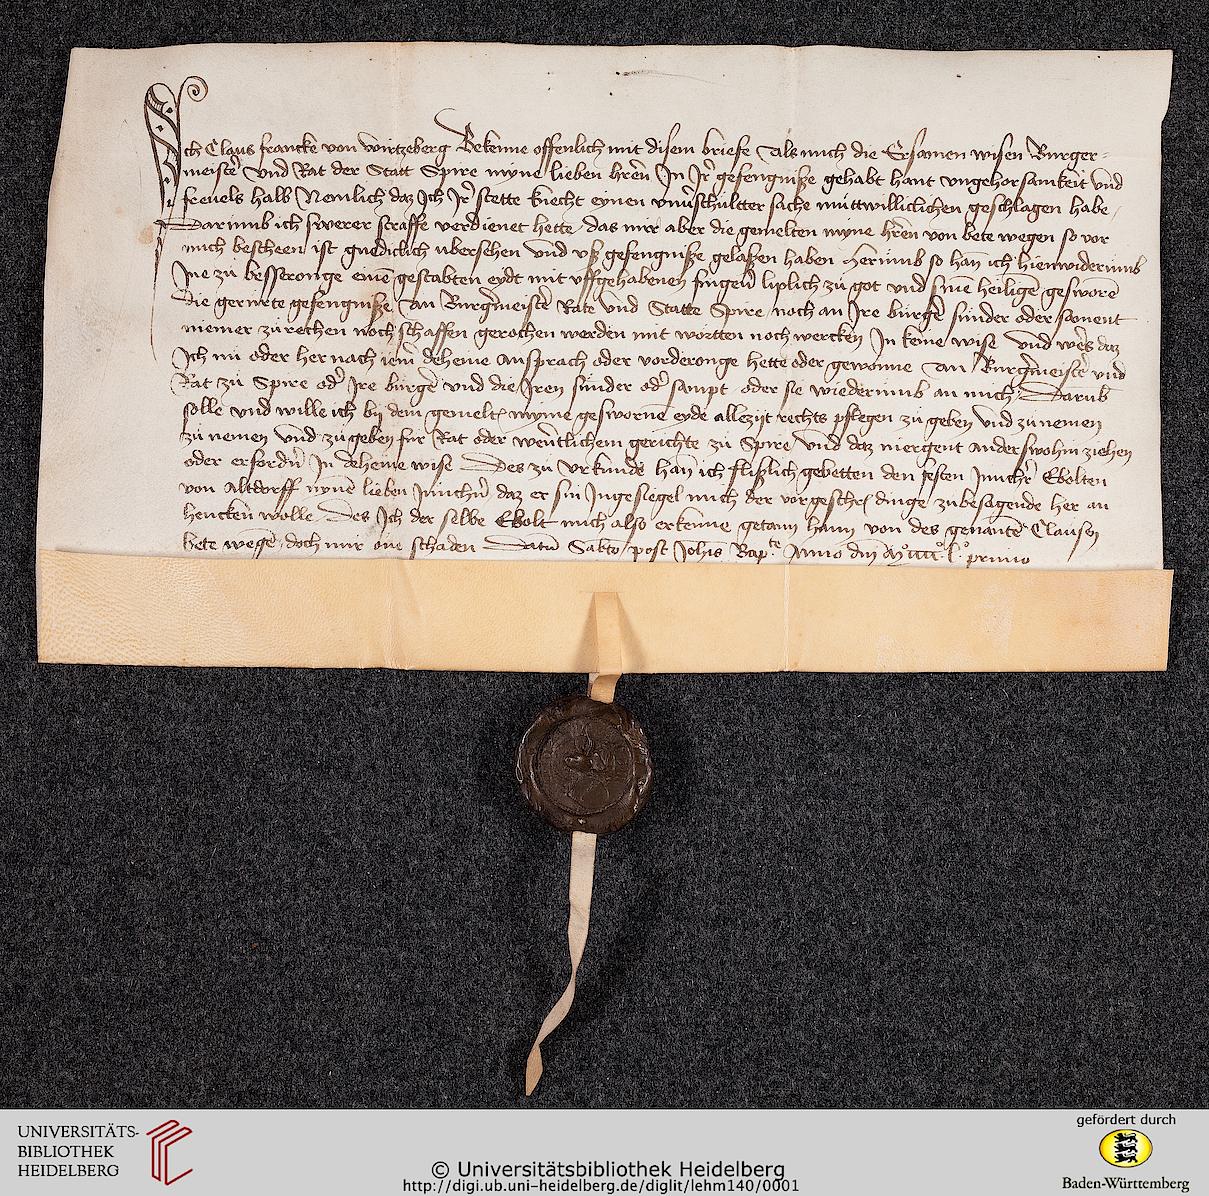 Ich Claus francke von wirtzeberg Bekenne offenlich mit disem briefe Als mich die Ersamen wisen Burger-
meist̄ Und Rat der Statt Spire myne lieben hrēn In Jr̄ gefengniße gehabt hant ungehorsamkeit und
frevels halb Nemlich daz Ich Jr̄ stette knecht eynen sache mūttwilliclichen geschlagen habe
Darūmb ich swerer straffe verdienet hette das mir aber die gemelten myne hrēn von bete wegen so vor
mich bescheen ist gnediclich ubersehen Und uß gefengniße gelaßen haben Herūmb so han ich hienwiderūmb
Ine zu besseronge einē gestabten eydt mit uffgehabenen fingeū liplich zu got und sine heiligē gesworē
die gerurte gefengniße An Burgmeistē Rate Und Statte Spire noch an Jre burgē sūnder oder sament
niemer zurechen noch schaffen gerochen werden mit wortten noch wercken In keine wise Und wēs daz
Ich nū oder her nach deheine Ansprach oder vorderonge hette oder gewonne An Burgmeistē und
Rat zu Spire odr̄ Jre burgē und die Jren sūnder odr̄ sampt oder sie wiederūmb an mich Darūb
solle und wille ich bij dem gemeltē myme gesworne eyde allezijt rechts pflegen zu geben Und zu nemen
zu nemen Und zu geben fur Rat oder weltlichem gerichte zu Spire Und daz niergent anderswohin ziehen
oder erfordn̄ In deheine wise Des zu urkunde han ich flißlich gebetten den festen Jungher Ebolten
von Altdorff mynē lieben Junchn̄ daz er sin Ingesiegel mich der vorgeschr̄ dinge zu besagende her an
hencken wolle Des Ich der selbe Ebolt mich also erkenne getann hann von des genantē Clausen
bete wegē doch mir one schaden Datū Sabto post Johis Bapte Anno dn̄i Mº iiijº lº primo
UNIVERSITÄTS-
BIBLIOTHEK
HEIDELBERG
© Universitätsbibliothek Heidelberg
http://digi.ub.uni-heidelberg.de/diglit/lehm140/0001
gefördert durch
Baden-Württemberg